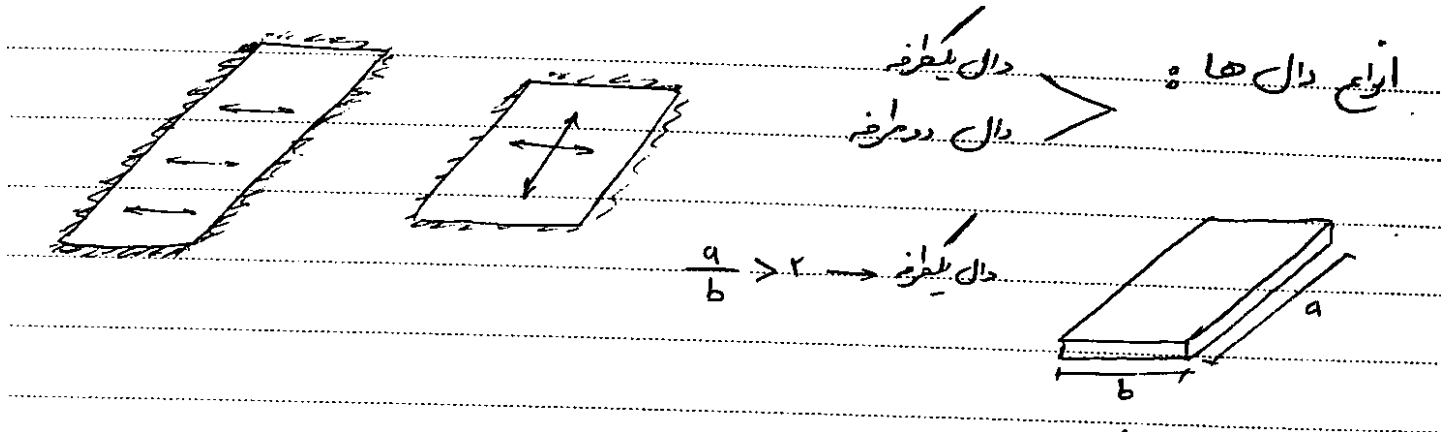 انواع دال ها :
دال یکطرفه
دال دوطرفه
a/b > ۲ → دال یکطرفه
a
b